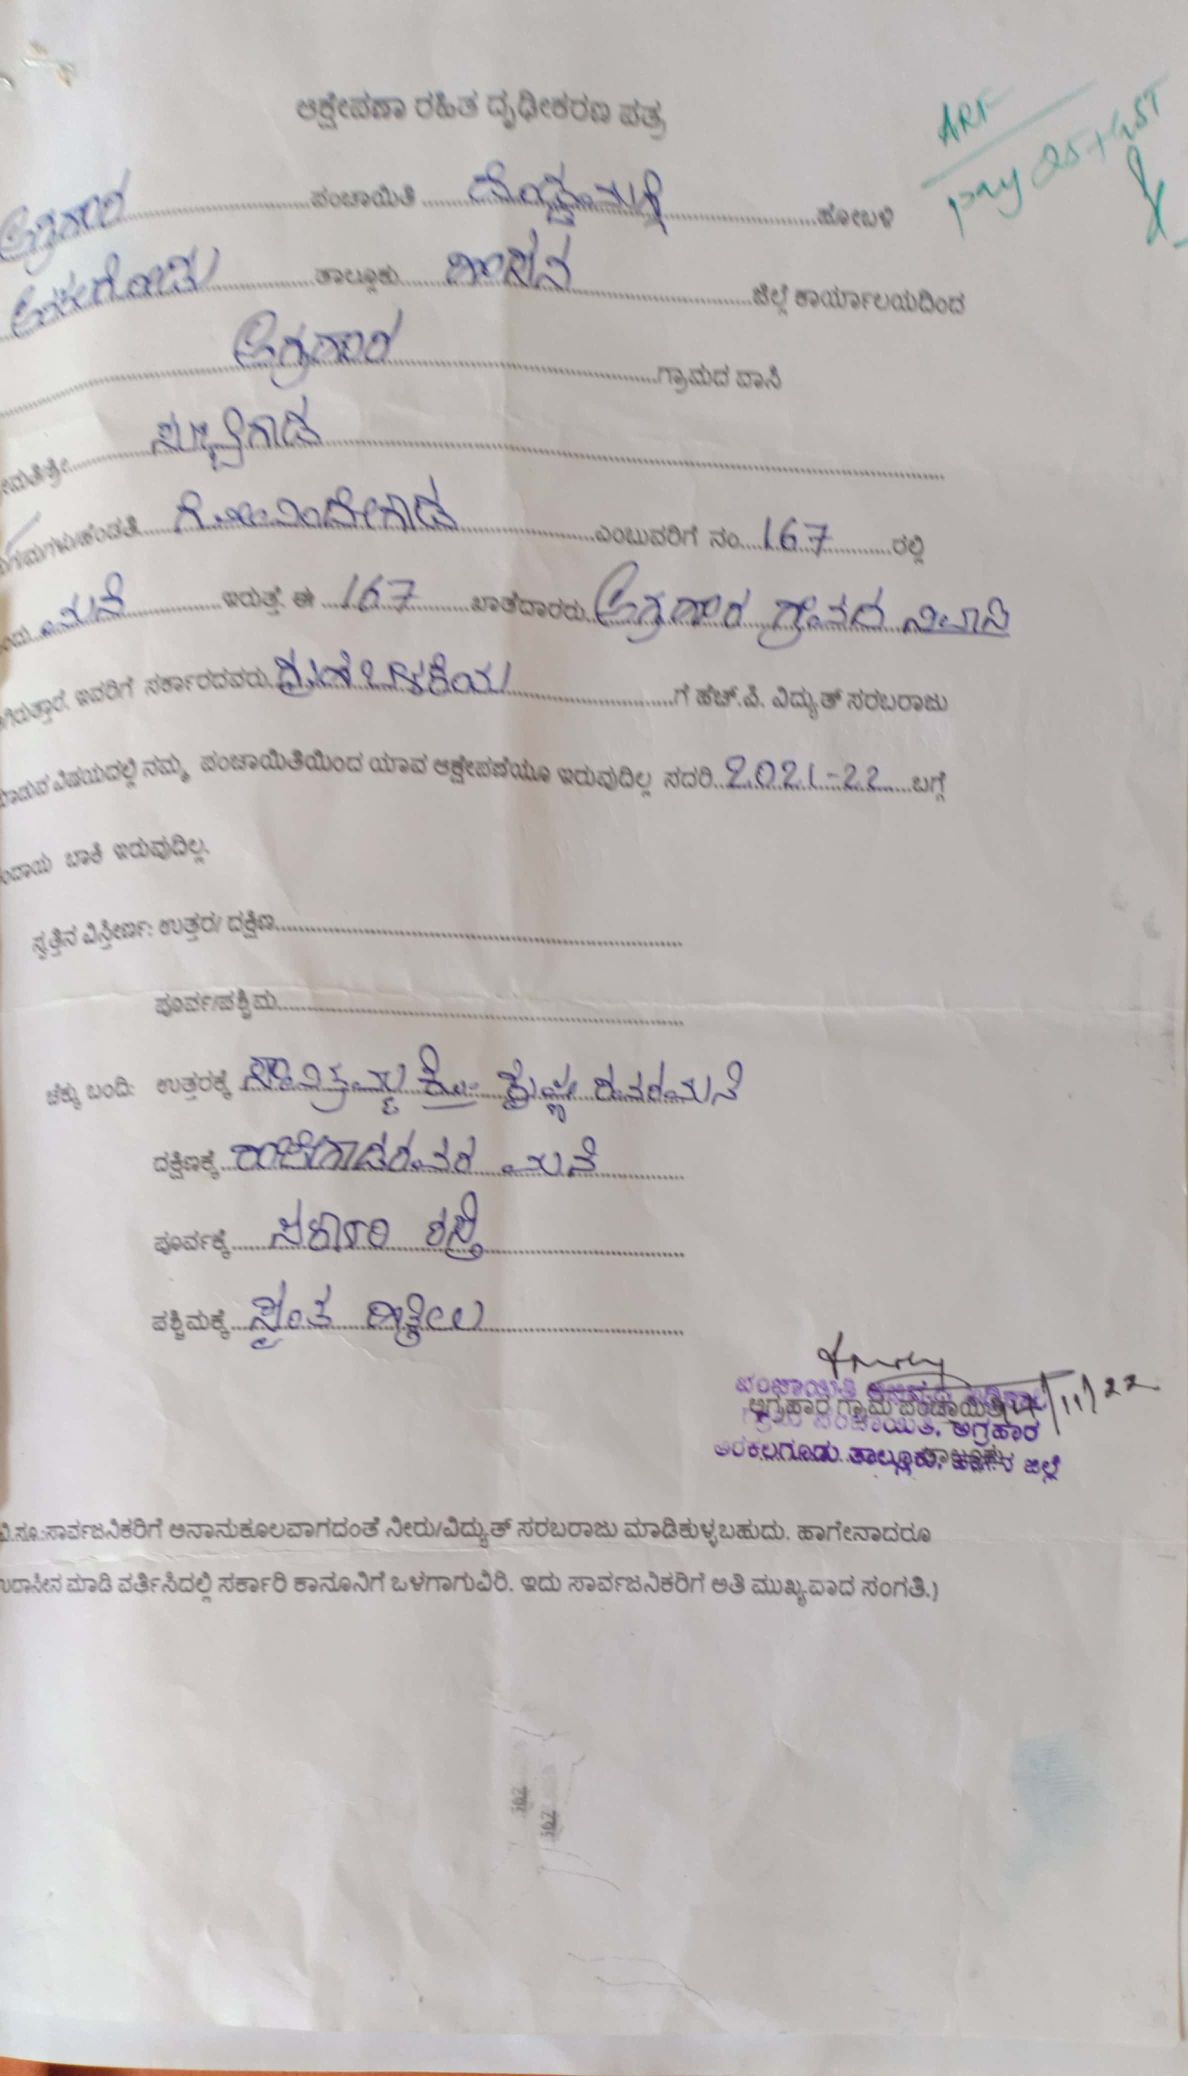 ಆಕ್ಷೇಪಣಾ ರಹಿತ ದೃಢೀಕರಣ ಪತ್ರ
ARF
pay 25+GST
ಅಗ್ರಹಾರ ಪಂಚಾಯಿತಿ ಹೋಬಳಿ
ಅರಕಲಗೂಡು ತಾಲ್ಲೂಕು ಹಾಸನ ಜಿಲ್ಲೆ ಕಾರ್ಯಾಲಯದಿಂದ
ಅಗ್ರಹಾರ ಗ್ರಾಮದ ವಾಸಿ
ಸುಬ್ಬೇಗೌಡ
ಗೋವಿಂದೇಗೌಡ ಎಂಬುವರಿಗೆ ನಂ. 167 ರಲ್ಲಿ
ಮನೆ ಇರುತ್ತೆ. ಈ 167 ಖಾತೆದಾರರು ಅಗ್ರಹಾರ ಗ್ರಾಮದ ನಿವಾಸಿ
ಇವರಿಗೆ ಸರ್ಕಾರದವರು ಗೃಹ ಬಳಕೆಯ ಗೆ ಹೆಚ್.ಪಿ. ವಿದ್ಯುತ್ ಸರಬರಾಜು
ಮಾಡುವ ವಿಷಯದಲ್ಲಿ ನಮ್ಮ ಪಂಚಾಯಿತಿಯಿಂದ ಯಾವ ಆಕ್ಷೇಪಣೆಯೂ ಇರುವುದಿಲ್ಲ ಸದರಿ 2021-22 ಬಗ್ಗೆ
ಬಾಕಿ ಇರುವುದಿಲ್ಲ.
ಸ್ವತ್ತಿನ ವಿಸ್ತೀರ್ಣ: ಉತ್ತರ/ ದಕ್ಷಿಣ
ಪೂರ್ವ/ಪಶ್ಚಿಮ
ಚಕ್ಕು ಬಂದಿ: ಉತ್ತರಕ್ಕೆ ಸಾವಿತ್ರಮ್ಮ ಕೋಂ ಕೃಷ್ಣೇ ರವರ ಮನೆ
ದಕ್ಷಿಣಕ್ಕೆ ಮನೆ
ಪೂರ್ವಕ್ಕೆ ಸರ್ಕಾರಿ ರಸ್ತೆ
ಪಶ್ಚಿಮಕ್ಕೆ ಸ್ವಂತ ಹಿತ್ತಲು
/11/22
ಅಗ್ರಹಾರ ಗ್ರಾಮ ಪಂಚಾಯಿತಿ
ಗ್ರಾಮ ಪಂಚಾಯಿತಿ, ಅಗ್ರಹಾರ
ಅರಕಲಗೂಡು ತಾಲ್ಲೂಕು, ಹಾಸನ ಜಿಲ್ಲೆ
ವಿ.ಸೂ.:ಸಾರ್ವಜನಿಕರಿಗೆ ಅನಾನುಕೂಲವಾಗದಂತೆ ನೀರು/ವಿದ್ಯುತ್ ಸರಬರಾಜು ಮಾಡಿಕುಳ್ಳಬಹುದು. ಹಾಗೇನಾದರೂ
ಉದಾಸೀನ ಮಾಡಿ ವರ್ತಿಸಿದಲ್ಲಿ ಸರ್ಕಾರಿ ಕಾನೂನಿಗೆ ಒಳಗಾಗುವಿರಿ. ಇದು ಸಾರ್ವಜನಿಕರಿಗೆ ಅತಿ ಮುಖ್ಯವಾದ ಸಂಗತಿ.)